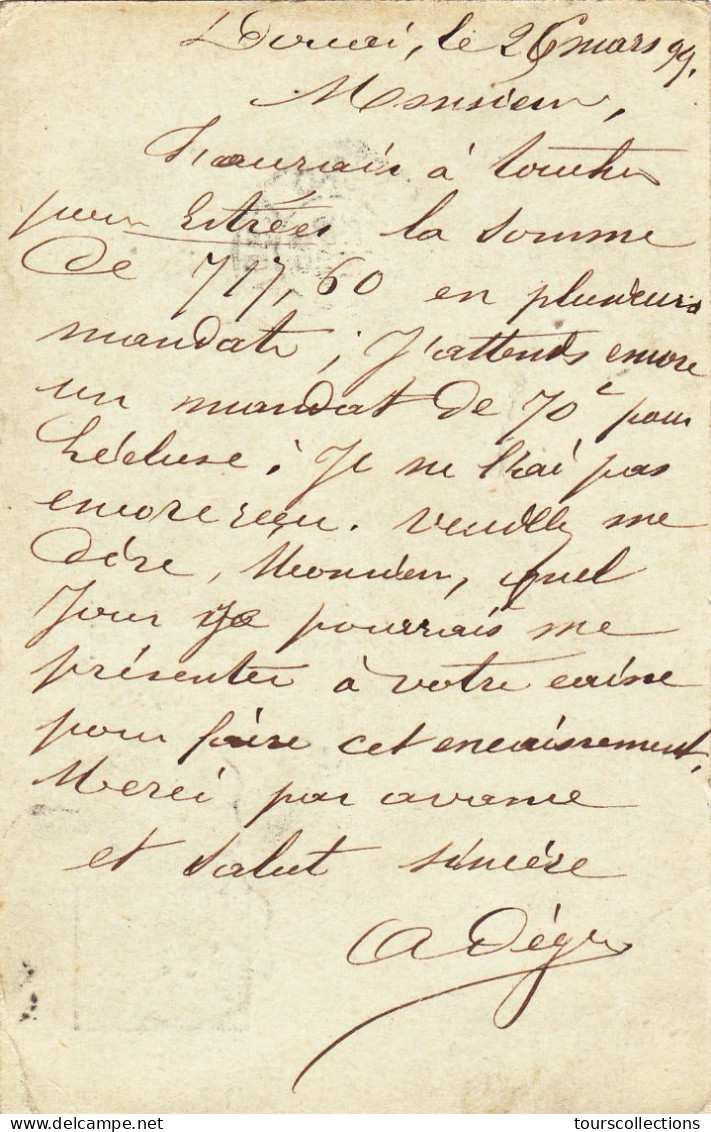 Douai, le 26 mars 99.
Monsieur,
J'aurais à toucher
pour Estrées la somme
de 717,60 en plusieurs
mandats ; J'attends encore
un mandat de 70c pour
Lécluse ; Je ne l'ai pas
encore reçu. Veuillez me
dire, Monsieur, quel
Jour je pourrais me
présenter à votre caisse
pour faire cet encaissement,
Merci par avance
et salut sincère
delcampe.net
tourscollections